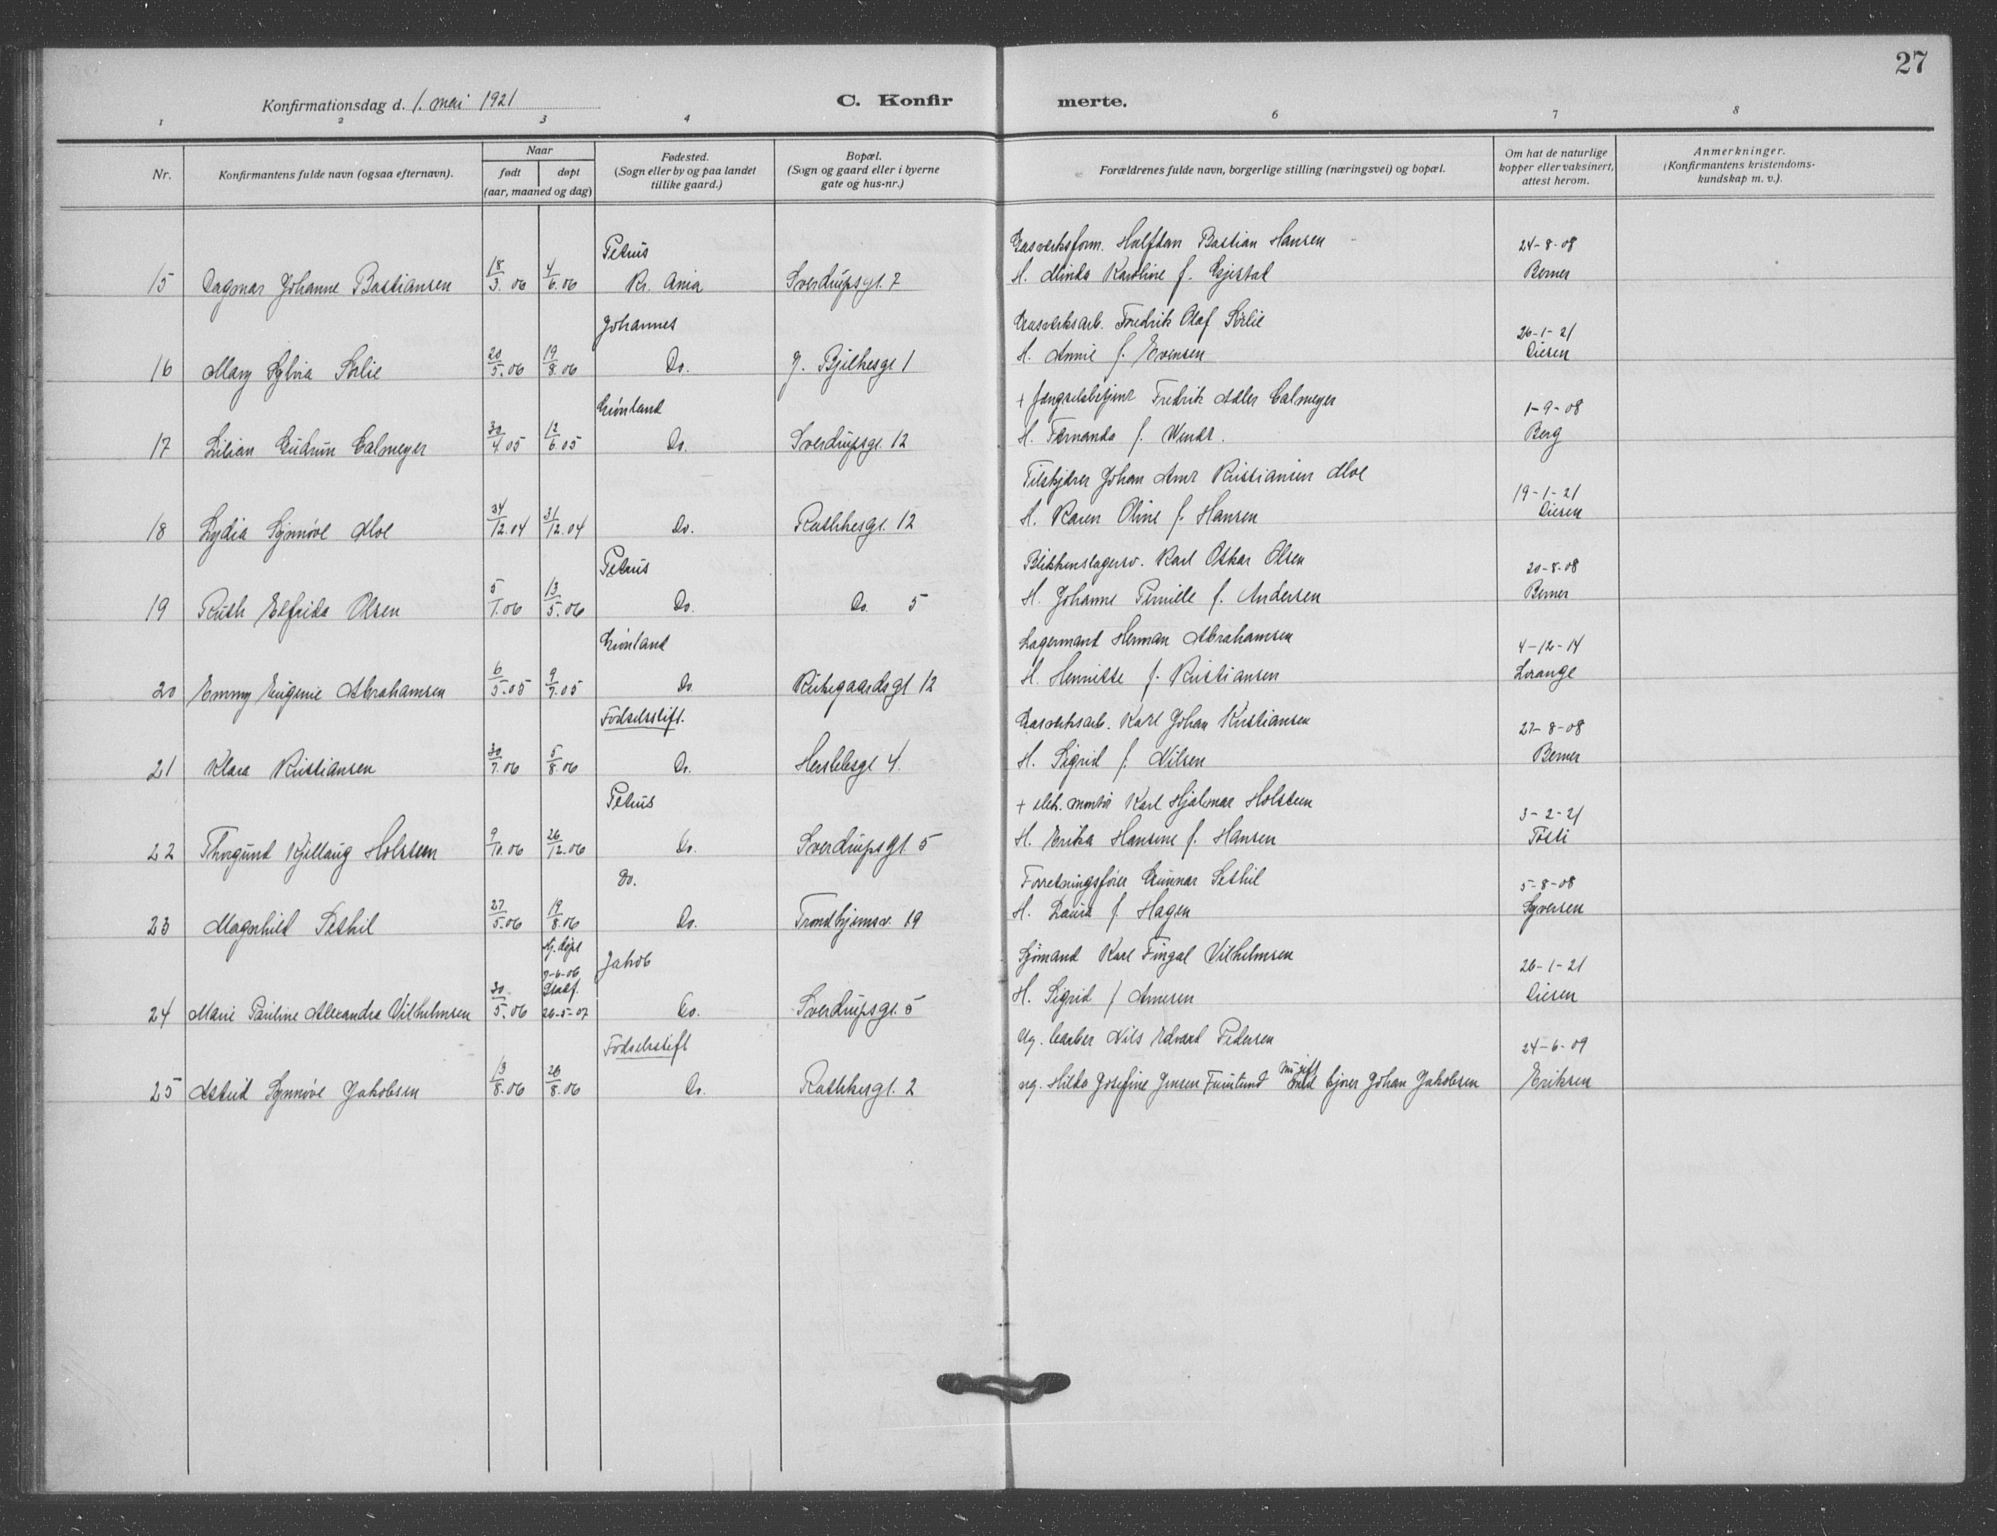 27
Konfirmationsdag d. 1. mai 1921
C. Konfirmerte.
1 2 3 4 6 7 8
Nr.
Konfirmantens fulde navn (ogsaa efternavn).
Naar
født døpt
(aar, maaned og dag)
Fødested.
(Sogn eller by og paa landet
tillike gaard.)
Bopæl.
(Sogn og gaard eller i byerne
gate og hus-nr.)
Forældrenes fulde navn, borgerlige stilling (næringsvei) og bopæl.
Om hat de naturlige
kopper eller vaksinert,
attest herom.
Anmerkninger.
(Konfirmantens kristendoms-
kundskap m. v.).
Petrus Gasverksform. Halfdan Bastian Hansen 24-8-08
15 Dagmar Johanne Bastiansen 18/3.06 4/6.06 Kr. ania Sverdrupsgt. 7 H. Minda Karoline f. Gjestad Berner
Johannes Gasverksarb. Fredrik Olaf Sørlie 26-1-21
16 Mary Sylvia Sørlie 20/5.06 19/8.06 Do. J. Bjelkesgt 1 H. Annie f. Evensen Diesen
Grønland + Fængselsbetjent Fredrik Adler Calmeyer 1-9-08
17 Lilian Gudrun Calmeyer 30/4.05 12/6.05 Do. Sverdrupsgt 12 H. Fernanda f. Wendt. Berg
Tilskjærer Johan Amt Kristiansen Moe 19-1-21
18 Lydia Synnøve Moe 31/12.04 Do. Rathkesgt. 12 H. Karen Oline f. Hansen Diesen
Petrus Blikkenslagersv. Karl Oskar Olsen 20-8-08
19 Ruth Elfrida Olsen 5/1.06 13/5.06 Do. Do. 5 H. Johanne Pernille f. Andersen Berner
Grønland Lagermand Herman Abrahamsen 4-12-14
20 Emmy Eugenie Abrahamsen 6/5.05 9/7.05 Do. Kirkegaardsgt 12 H. Henritte f. Kristiansen Lorange
Fødselsstift. Gasverksarb. Karl Johan Kristiansen 27-8-08
21 Klara Kristiansen 30/7.06 5/8.06 Do. Herslebsgt 4. H. Sigrid f. Nilsen Berner
Petrus + elek. montør Karl Hjalmar Holsteen 3-2-21
22 Thorgund Kjellaug Holsteen 9/10.06 26/12.06 Do. Sverdrupsgt 5 H. Erika Hansine f. Hansen Tosti
Do. Forretningsfører Gunnar Sethil 5-8-08
23 Magnhild Sethil 27/5.06 19/8.06 Do. Trondhjemsv. 19 H. Laura f. Hagen Syversen
Hj. døpt 7-6-06 Jakob Sjømand Karl Fingal Vilhelmsen 26-1-21
24 Marie Pauline Alexandra Vilhelmsen 30/5.06 Stadf. 26-5-07 Do. Sverdrupsgt. 5 H. Sigrid f Arnesen Diesen
Fødselsstift Ug. barber Nils Edvard Pedersen 24-6-09
25 Astrid Synnøve Jakobsen 13/8.06 26/8.06 Do. Rathkesgt. 2 ug. Hilda Josefine Jensen Furulund nu gift med kjører Johan Jakobsen Eriksen